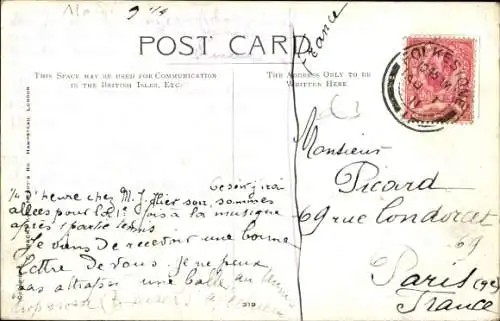 9 1/4
POST CARD.
THIS SPACE MAY BE USED FOR COMMUNICATION
IN THE BRITISH ISLES, ETC.
THE ADDRESS ONLY TO BE
WRITTEN HERE
France
FOLKESTONE
Monsieur
Picard
69 rue Condorcet
69
Paris (9e)
France
Ce soir j'irai
1/4 d'heure chez M. J. Hier soir, sommes
allées pour la 1e fois à la musique
après 1 partie tennis
Je viens de recevoir une bonne
lettre de vous. je ne peux
pas attraper une balle au
HAMPSTEAD, LONDON
219